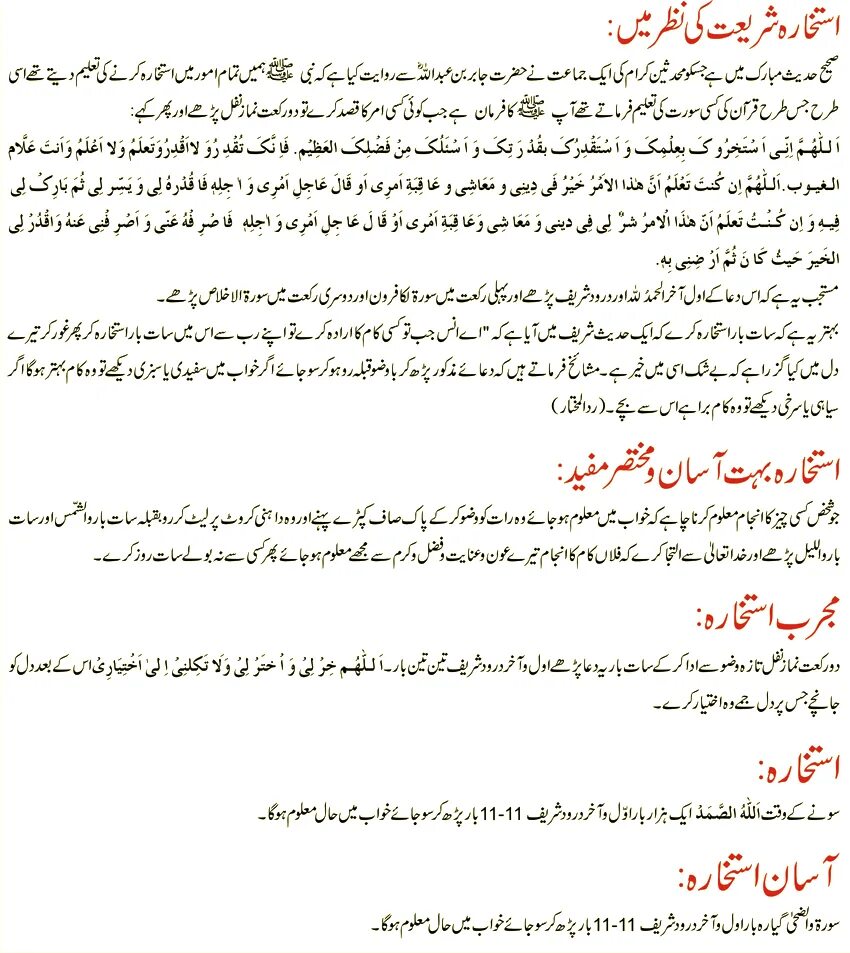 استخارہ شریعت کی نظر میں:
صحیح حدیث مبارک میں ہے جسکو محدثین کرام کی ایک جماعت نے حضرت جابر بن عبداللہؓ سے روایت کیا ہے کہ نبی ﷺ ہمیں تمام امور میں استخارہ کرنے کی تعلیم دیتے تھے اسی
طرح جس طرح قرآن کی کسی سورت کی تعلیم فرماتے تھے آپ ﷺ کا فرمان ہے جب کوئی کسی امر کا قصد کرے تو دو رکعت نماز نفل پڑھے اور پھر کہے:
اَللّٰھُمَّ اِنِّی اَ سْتَخِیرُو کَ بِعِلْمِکَ وَ اَ سْتَقْدِرُکَ بِقُدْ رَتِکَ وَ اَ سْئَلُکَ مِنْ فَضْلِکَ العَظِیْمِ. فَاِ نَّکَ تُقْدِ رُو لَااَقْدِرُوَتَعلَمُ وَلَا اَعْلَمُ وَاَنتَ عَلَّام
الـغـیـوب.اَللّٰهُمَّ اِن کُنتَ تَعْلَمُ اَنَّ هٰذا الاَمْرُ خَیْرٌ فَی دِینِی و مَعَاشِی و عَا قِبَةِ اَمرِی اَو قَالَ عَاجِلِ اَمْرِی وَ اٰ جِلِهٖ فَا قْدُرهُ لِی وَ یَسِّر لِی ثُمَ بَارِکْ لِی
فِیـهِ وَ اِن کُـنْـتُ تَعلَمُ اَنّ هٰذَا الْاَمرُ شرٌ لِی فِی دینی و مَعَا شِی وَعَا قِبَةِ اَمْری اَوْ قَا لَ عَا جِلِ اَمْرِی وَ اٰجِلِهٖ فَا صْرِ فْهُ عَنِّی وَ اَصْرِ فْنِی عَنهُ وَاقْدُرْ لِی
الخَیرَ حَیثُ کَا نَ ثُمَّ اَرْ ضِنِی بِهٖ.
مستحب یہ ہے کہ اس دعا کے اول آخر الحمدُ للہ اور درود شریف پڑھے اور پہلی رکعت میں سورۃ لکافرون اور دوسری رکعت میں سورۃ الاخلاص پڑھے۔
بہتر یہ ہے کہ سات بار استخارہ کرے کہ ایک حدیث شریف میں آیا ہے کہ "اے انس جب تو کسی کام کا ارادہ کرے تو اپنے رب سے اس میں سات بار استخارہ کر پھر غور کر تیرے
دل میں کیا گزرا ہے کہ بے شک اسی میں خیر ہے۔ مشائخ فرماتے ہیں کہ دعائے مذکور پڑھ کر باوضو قبلہ رو ہو کر سو جائے اگر خواب میں سفیدی یا سبزی دیکھے تو وہ کام بہتر ہوگا اگر
سیاہی یا سرخی دیکھے تو وہ کام برا ہے اس سے بچے۔ (ردالمختار)
استخارہ بہت آسان و مختصر مفید:
جو شخص کسی چیز کا انجام معلوم کرنا چاہے کہ خواب میں معلوم ہو جائے وہ رات کو وضو کر کے پاک صاف کپڑے پہنے اور وہ داہنی کروٹ پر لیٹ کر رو بقبلہ سات بار والشّمس اور سات
بار واللیل پڑھے اور خدا تعالیٰ سے التجا کرے کہ فلاں کام کا انجام تیرے عون و عنایت و فضل و کرم سے مجھے معلوم ہو جائے پھر کسی سے نہ بولے سات روز کرے۔
مجرب استخارہ:
دو رکعت نماز نفل تازہ وضو سے ادا کر کے سات بار یہ دعا پڑھے اول و آخر درود شریف تین تین بار۔ اَللّٰھُم خِرْ لِیْ وَ اْ ختَرْ لِیْ وَلَا تَکِلنِیْ اِ لیٰ اَخْتِیَارِیْ اس کے بعد دل کو
جانچے جس پر دل جمے وہ اختیار کرے۔
استخارہ:
سونے کے وقت اَللہُ الصَّمَدْ ایک ہزار بار اوّل و آخر درود شریف 11-11 بار پڑھ کر سو جائے خواب میں حال معلوم ہوگا۔
آسان استخارہ:
سورۃ والضحیٰ گیارہ بار اول و آخر درود شریف 11-11 بار پڑھ کر سو جائے خواب میں حال معلوم ہوگا۔